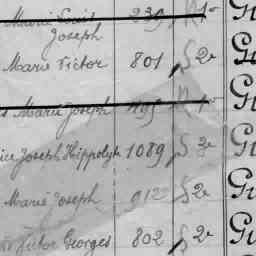 Marie Louis 239 N 1º Gu
Joseph
Marie Victor 801 S 2º Gu
Marie Joseph N Gu
Joseph Hippolyte 1089 S 3º Gu
Marie Joseph 912 S 2º Gu
Victor Georges 802 S 2º Gu